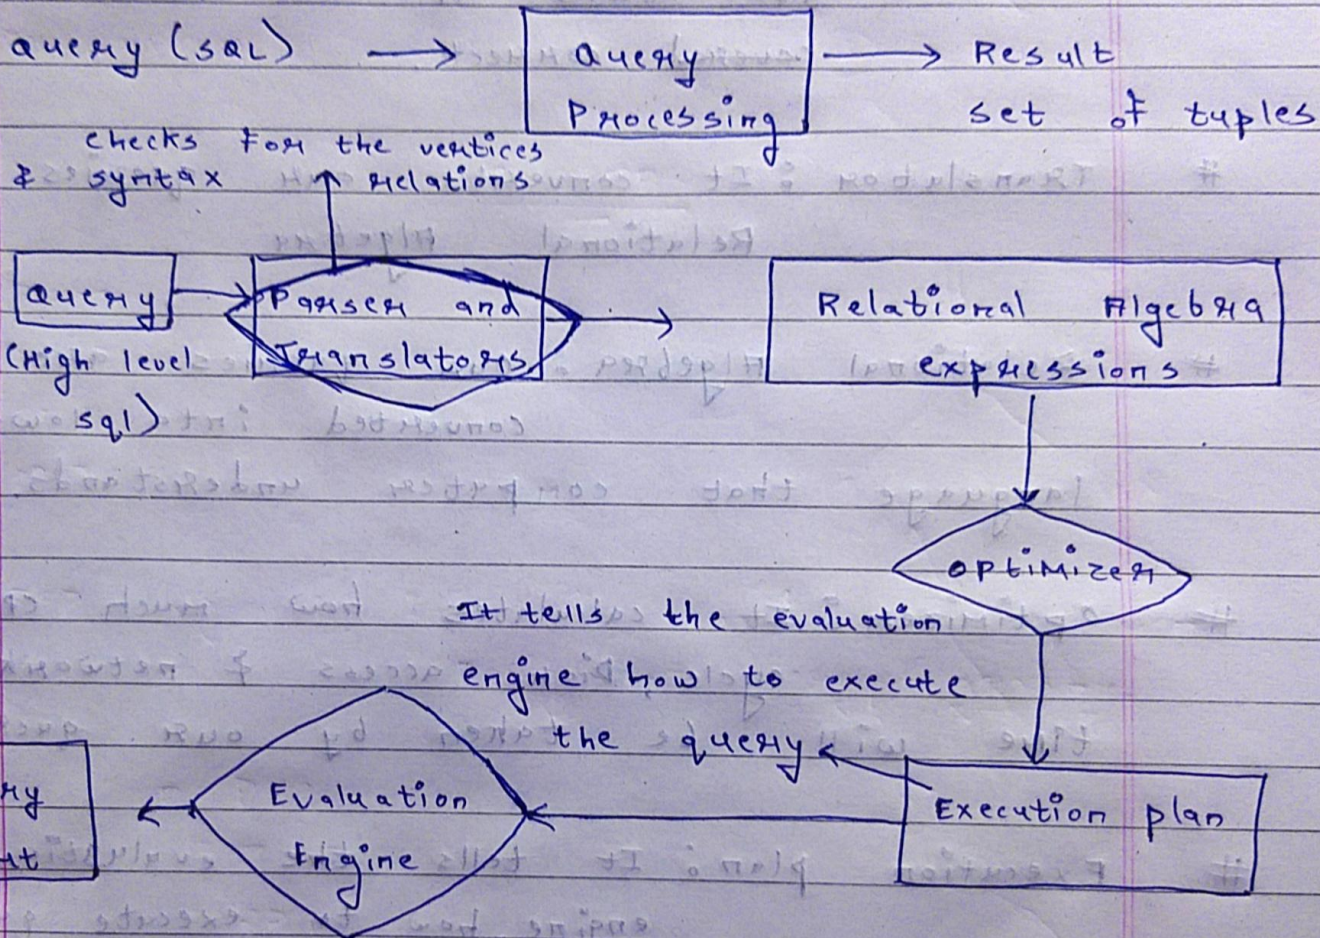 query (SQL) → Query Processing → Result
set of tuples
checks for the vertices
& syntax relations
Query
(High level
sql)
Parser and
Translators
Relational Algebra
expressions
optimizer
It tells the evaluation
engine how to execute
the query
Execution plan
Evaluation
Engine